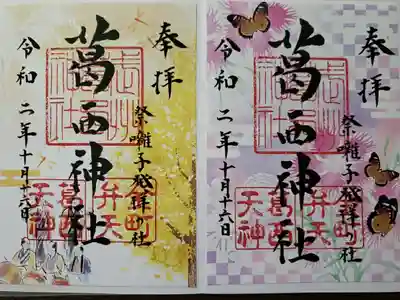 奉拝
葛西神社
祭囃子発祥の社
令和二年十月十六日
葛西神社
町
弁天
葛西
天神
奉拝
葛西神社
祭囃子発祥の社
令和二年十月十六日
町
弁天
葛西
天神